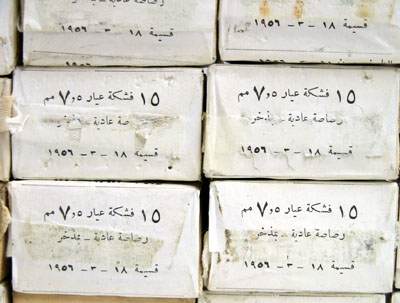 قسيمة ١٨ - ٣ - ١٩٥٦
قسيمة ١٨ - ٣ - ١٩٥٦
١٥ فشكة عيار ٥و٧ مم
رصاصة عادية - بمذخر
قسيمة ١٨ - ٣ - ١٩٥٦
١٥ فشكة عيار ٥و٧ مم
رصاصة عادية - بمذخر
قسيمة ١٨ - ٣ - ١٩٥٦
١٥ فشكة عيار ٥و٧ مم
رصاصة عادية - بمذخر
قسيمة ١٨ - ٣ - ١٩٥٦
١٥ فشكة عيار ٥و٧ مم
رصاصة عادية - بمذخر
قسيمة ١٨ - ٣ - ١٩٥٦